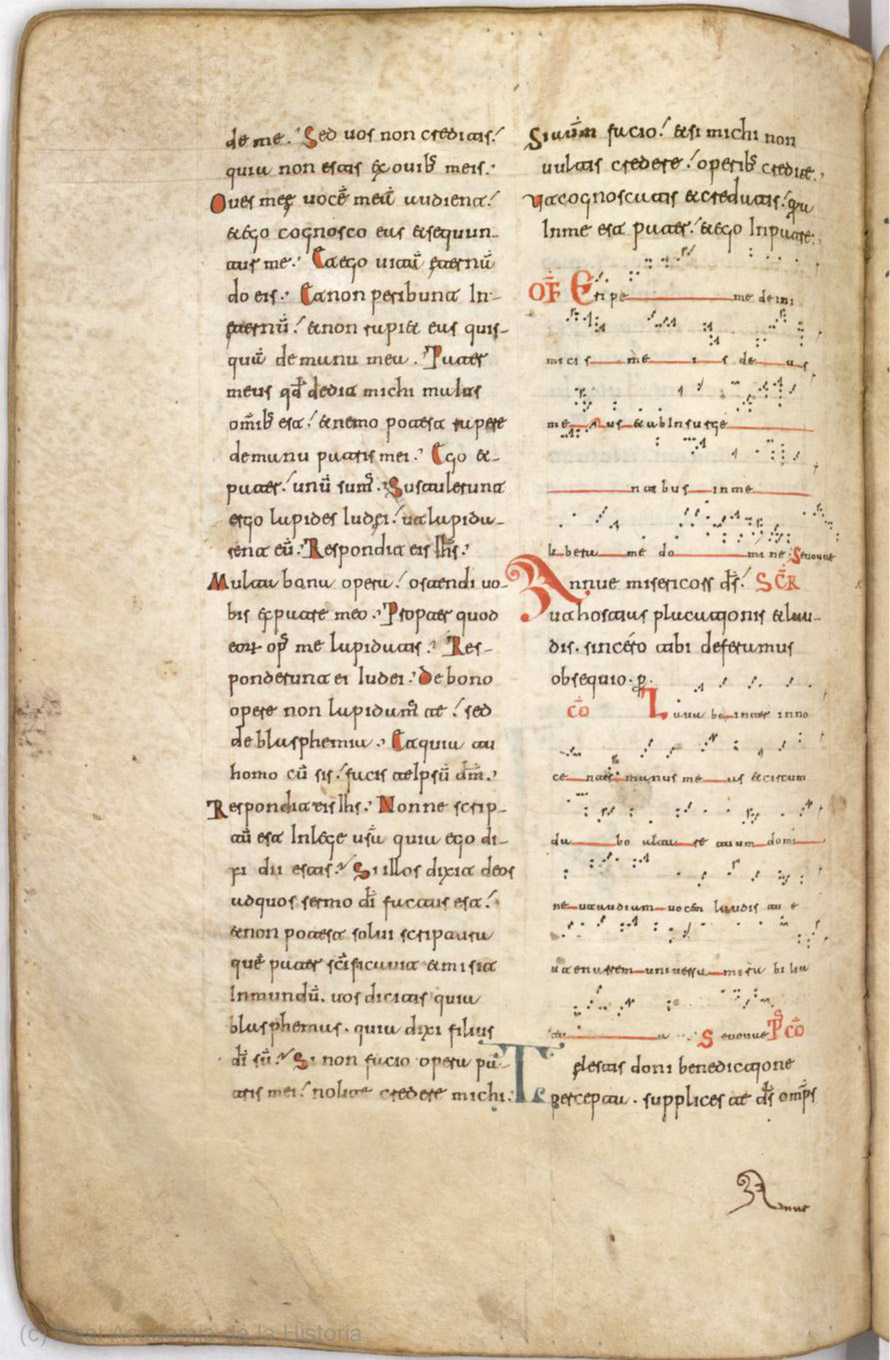 de me. Sed uos non creditis.
quia non estis ex ouib; meis.
Oues meę uocē meā audient.
& ego cognosco eas & sequun-
tur me. Et ego uitā ęternā
do eis. Et non peribunt In-
ęternū. & non rapi& eas quis-
quā de manu mea. Pater
meus qd̄ dedit michi maius
omīb; est. & nemo potest rapere
de manu patris mei. Ego &-
pater. unū sum̄. Sustulerunt
ergo lapides Iudei. ut lapida-
rent eū. Respondit eis ihs̄.
Multa bona opera. ostendi uo-
bis ex patre meo. Propter quod
eor op̄ me lapidatis. Res-
ponderunt ei Iudei. De bono
opere non lapidam̄ te. sed
de blasphemia. Et quia tu
homo cū sis. facis te Ipsū dm̄.
Respondit eis ihs̄. Nonne scrip-
tū est In lege uṝa quia ego di-
xi dii estis. Si illos dixit deos
ad quos sermo di̅ factus est.
& non potest solui scriptura
quē pater sc̄ificauit & misit
In mundū. uos dicitis quia
blasphemas. quia dixi filius
di̅ sū. Si non facio opera pa-
tris mei. nolite credere michi.
Si autē facio. & si michi non
uultis credere. operib; credite.
ut cognoscatis & credatis. quia
In me est pater. & ego In patre.
OF̄ Eripe me de ini
micis me is deus
meus & ab Insurge
ntibus in me
libera me domine Seuouae
Annue misericors ds̄. SCR̄
ut hostias placationis & lau-
dis. sincero tibi deferamus
obsequio. p
CŌ Lauabo inter inno
centes manus meas & circum
dabo altare tuum domi
ne ut audiam uocem laudis tue
ut enarrem uniuersa mirabilia
tua Seuouae Ps PCŌ
Celestis doni benedictione
percepta. supplices te ds̄ omps̄
Annue
(c) Real Academia de la Historia